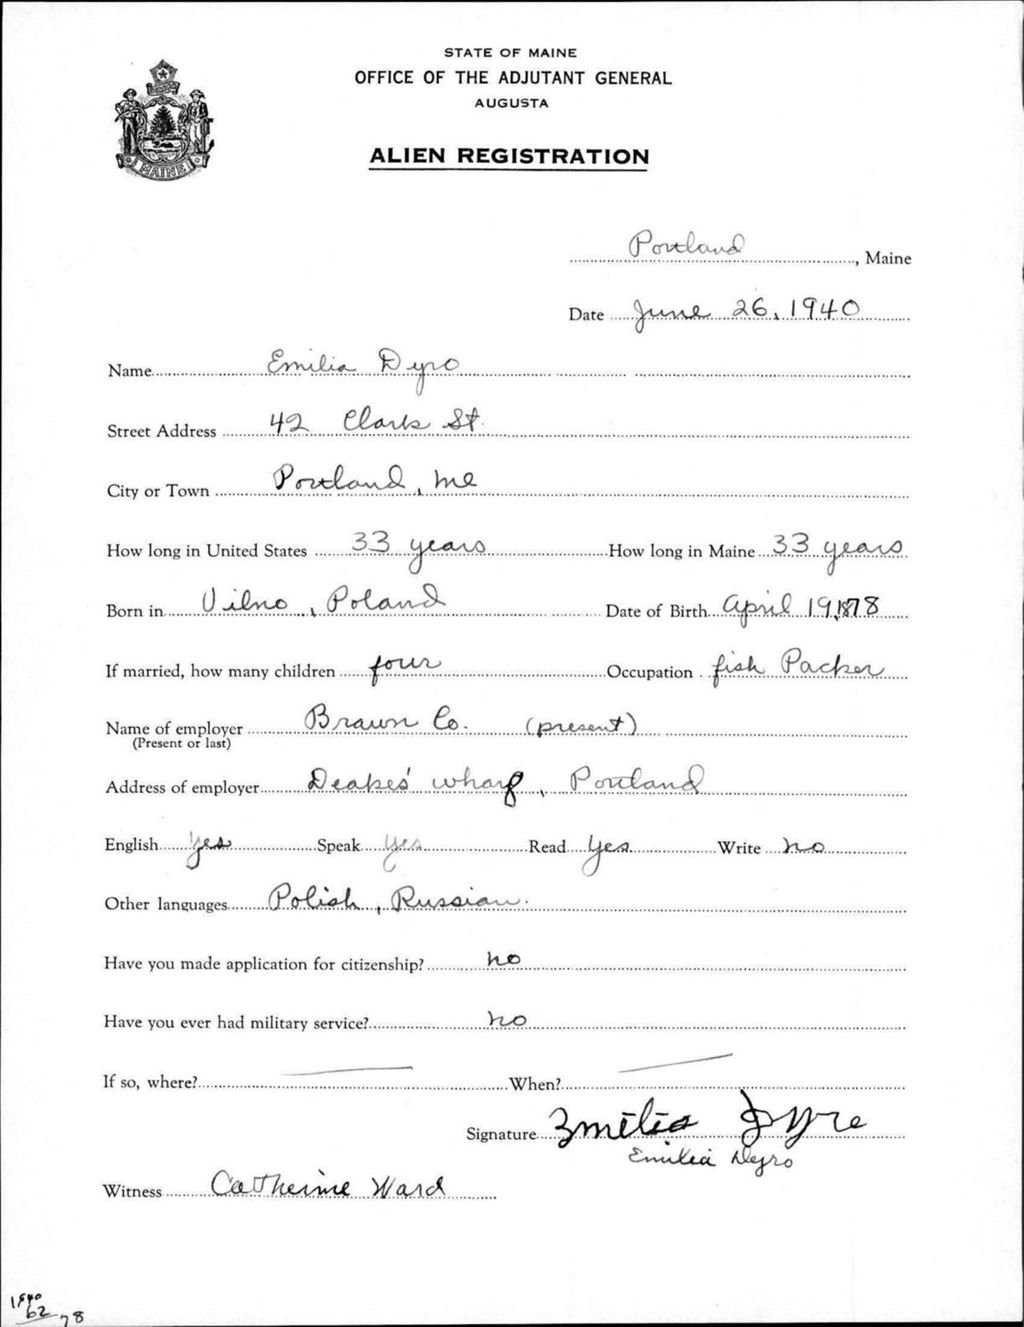 STATE OF MAINE
OFFICE OF THE ADJUTANT GENERAL
AUGUSTA
ALIEN REGISTRATION
MAINE
Portland, Maine
Date June 26, 1940
Name Emilia Dyro
Street Address 42 Clark St.
City or Town Portland, Me
How long in United States 33 years How long in Maine 33 years
Born in Vilno, Poland Date of Birth April 19, 1878
If married, how many children four Occupation fish Packer
Name of employer Brawn Co. (present)
(Present or last)
Address of employer Deakes' wharf, Portland
English Yes Speak Yes Read Yes Write no
Other languages Polish, Russian.
Have you made application for citizenship? no
Have you ever had military service? no
If so, where? When?
Signature Emilia Dyro
Emilia Dyro
Witness Catherine Ward
1940
62
78